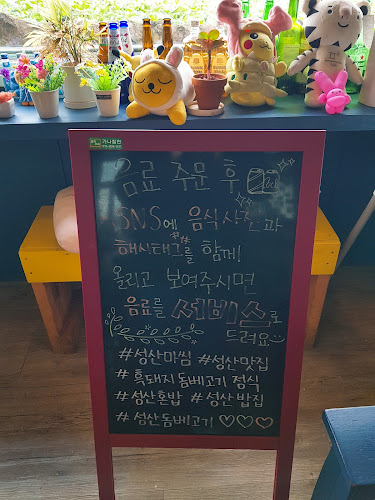 가나칠판
음료 주문 후
SNS에 음식사진과
해시태그를 함께!
올리고 보여주시면
음료를 서비스로
드려요
#성산마씸 #성산맛집
#흑돼지 돔베고기 정식
#성산혼밥 #성산밥집
#성산돔베고기 ♡♡♡